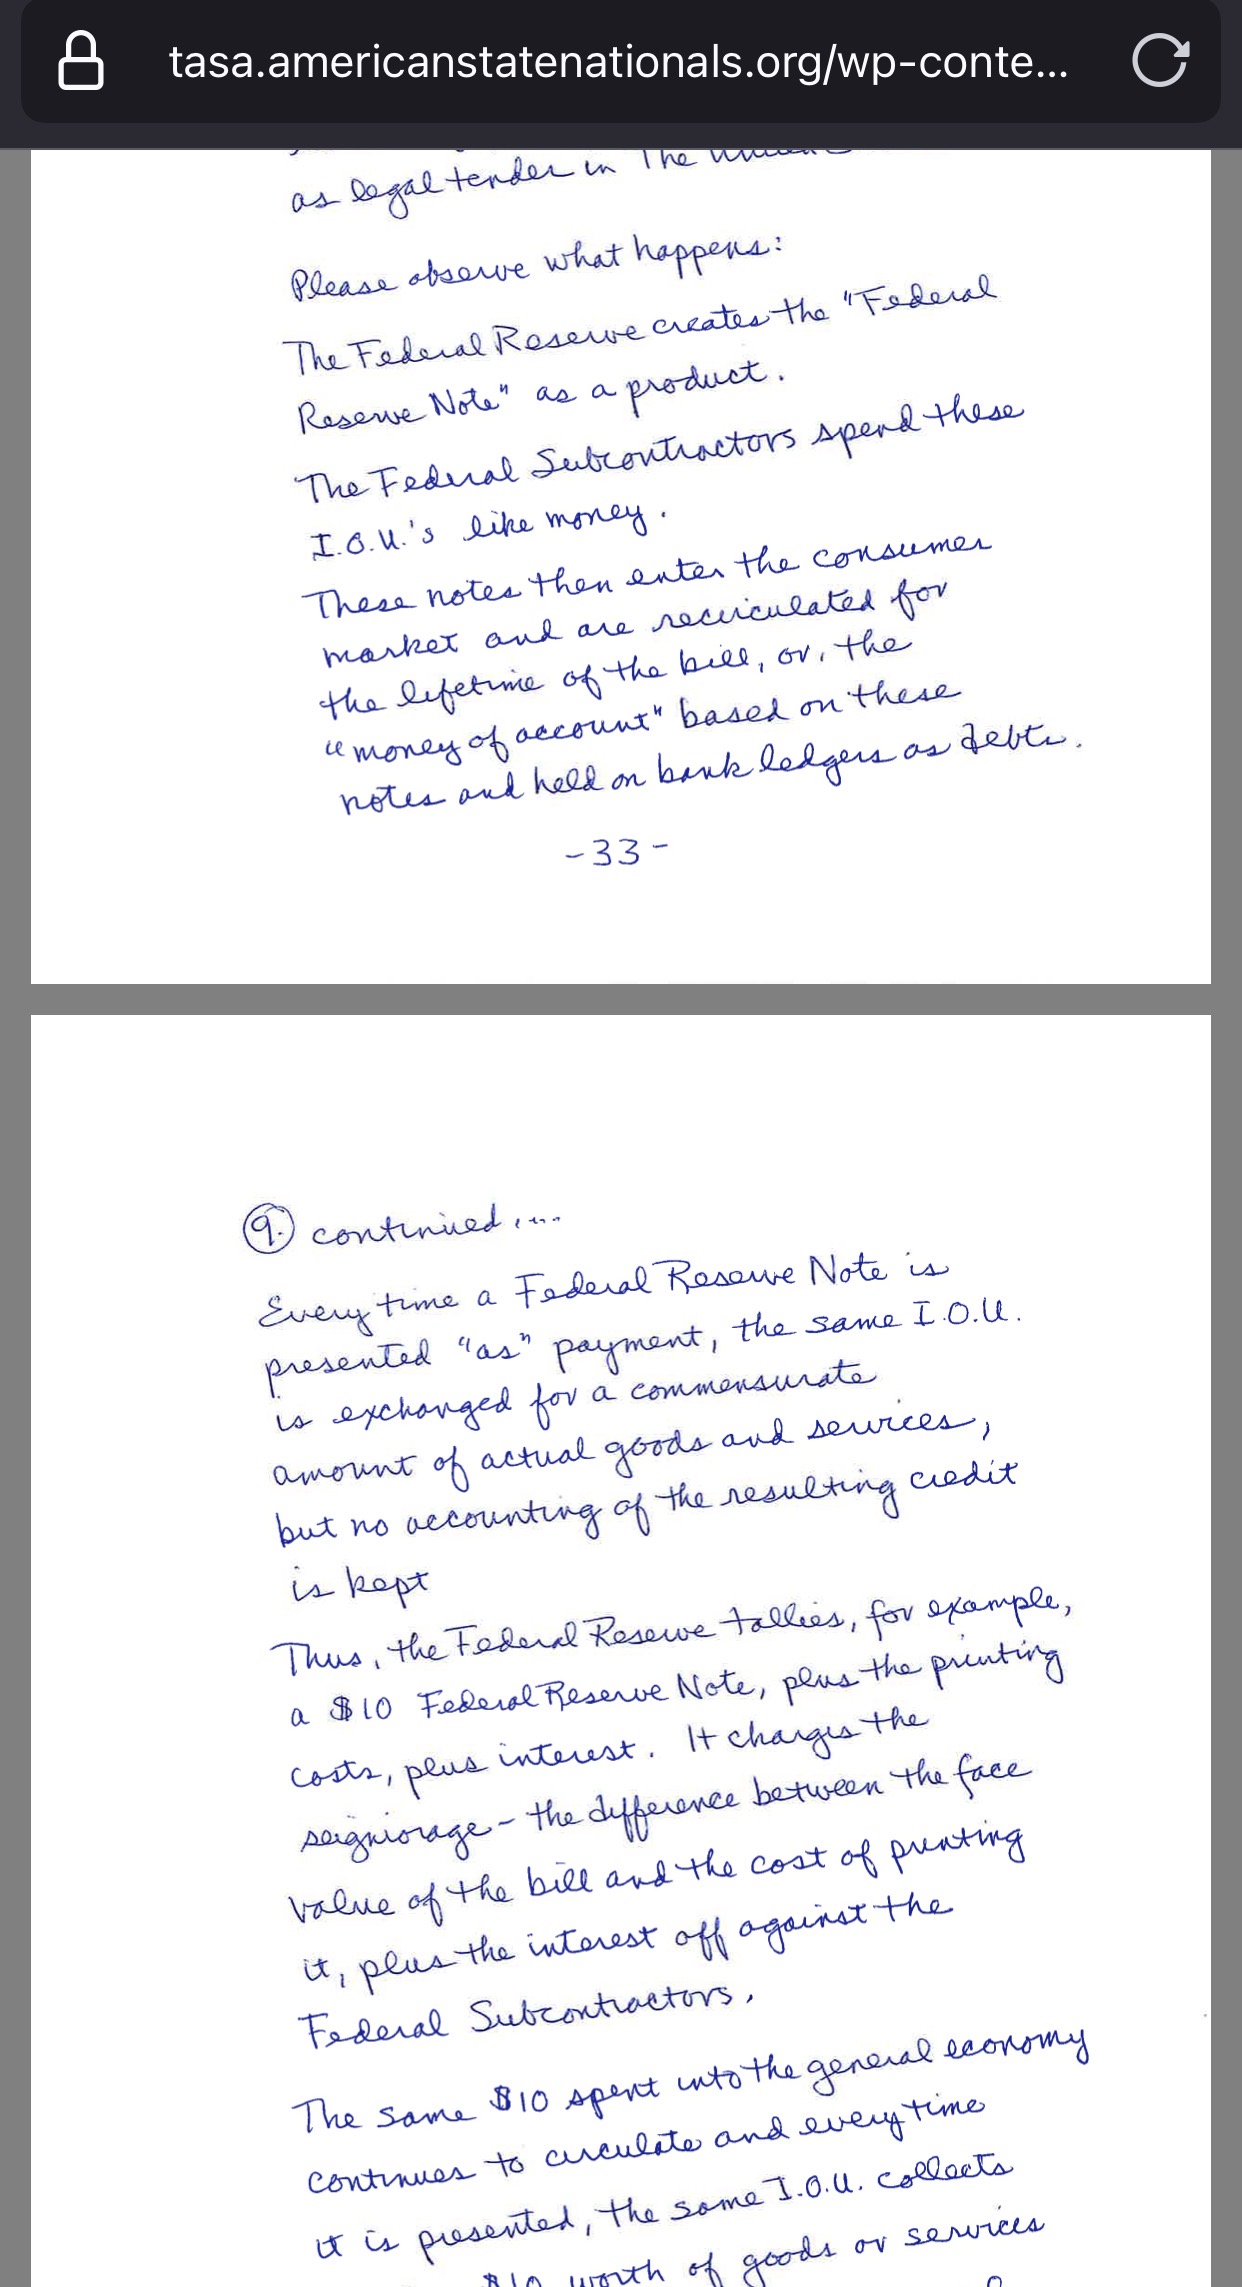 tasa.americanstatenationals.org/wp-conte...
as legal tender in The
Please observe what happens:
The Federal Reserve creates the "Federal
Reserve Note" as a product.
The Federal Subcontractors spend these
I.O.U.'s like money.
These notes then enter the consumer
market and are recirculated for
the lifetime of the bill, or, the
"money of account" based on these
notes and held on bank ledgers as debts.
-33-
9. continued....
Every time a Federal Reserve Note is
presented "as" payment, the same I.O.U.
is exchanged for a commensurate
amount of actual goods and services,
but no accounting of the resulting credit
is kept
Thus, the Federal Reserve tallies, for example,
a $10 Federal Reserve Note, plus the printing
costs, plus interest. It charges the
seigniorage - the difference between the face
value of the bill and the cost of printing
it, plus the interest off against the
Federal Subcontractors.
The same $10 spent into the general economy
continues to circulate and every time
it is presented, the same I.O.U. collects
$10 worth of goods or services